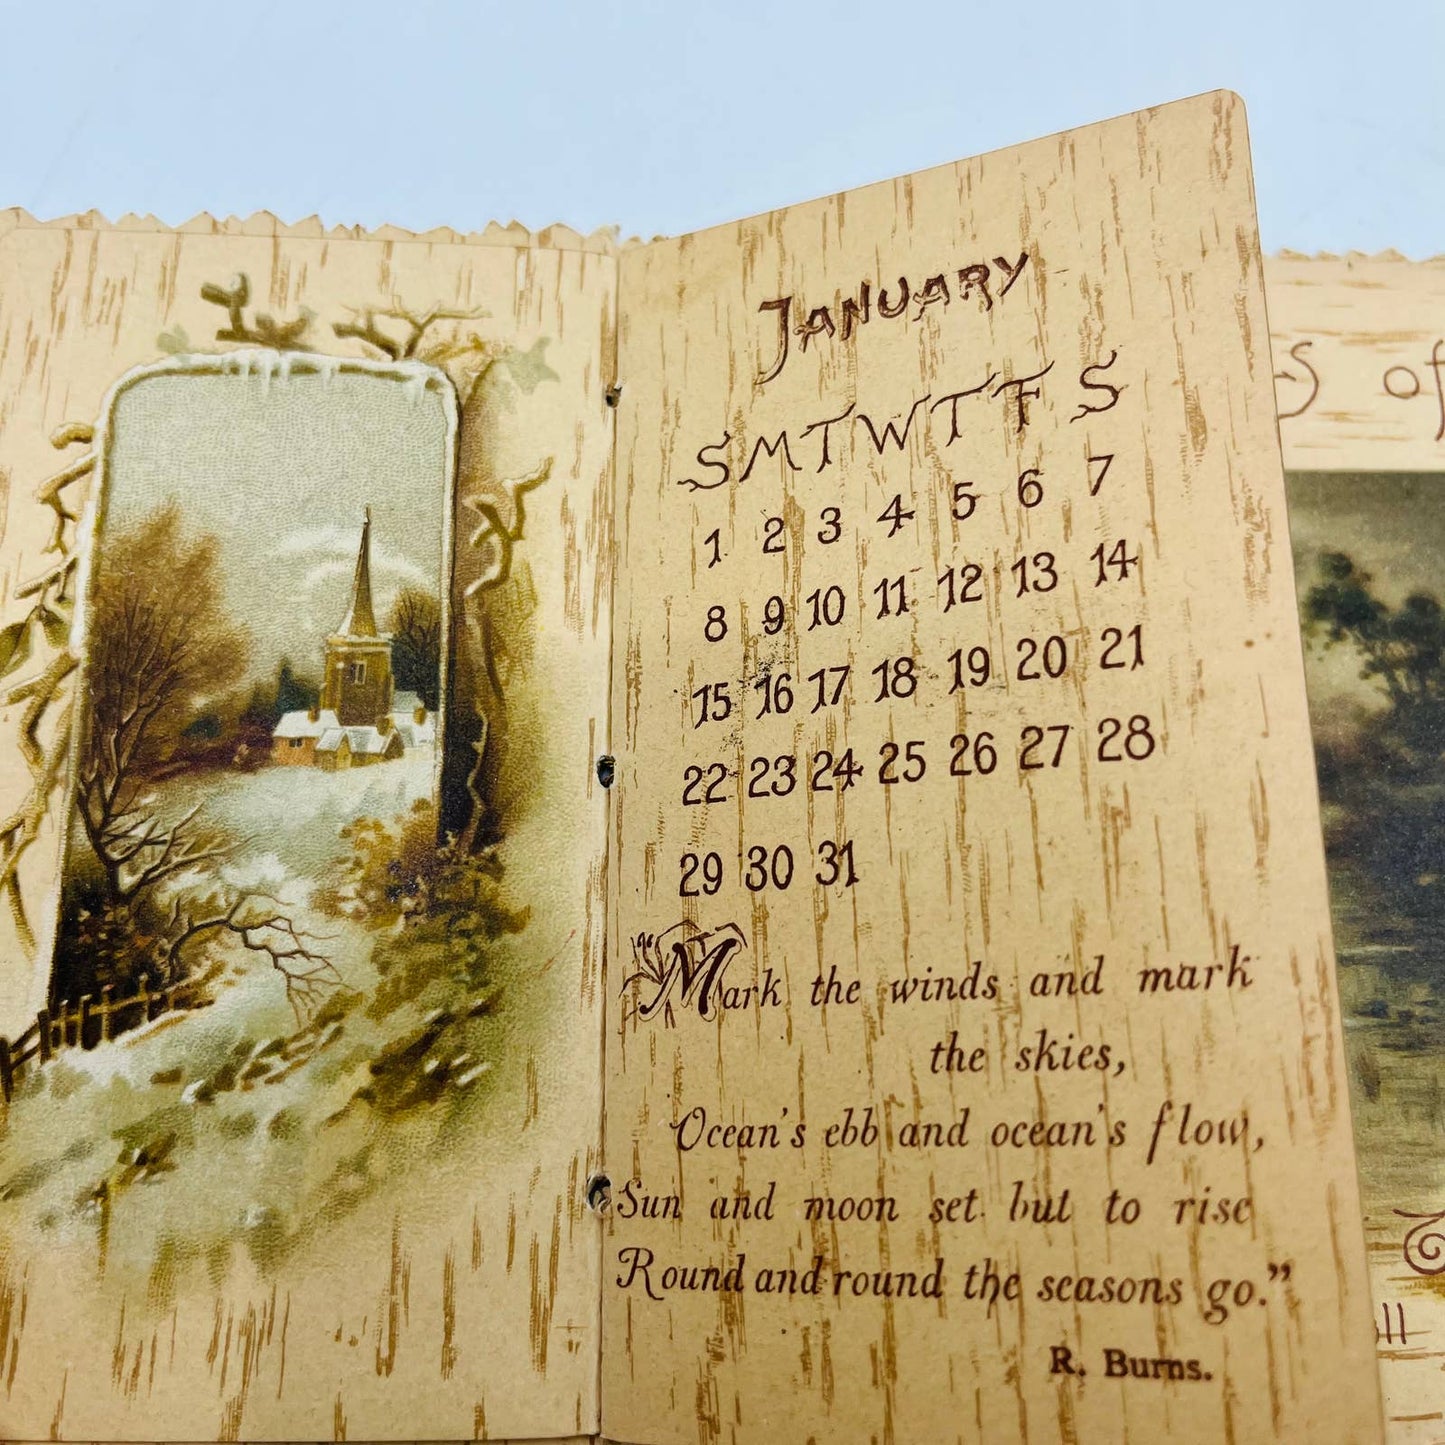 January
S M T W T F S
1 2 3 4 5 6 7
8 9 10 11 12 13 14
15 16 17 18 19 20 21
22 23 24 25 26 27 28
29 30 31
Mark the winds and mark
the skies,
Ocean's ebb and ocean's flow,
Sun and moon set but to rise
Round and round the seasons go."
R. Burns.
of